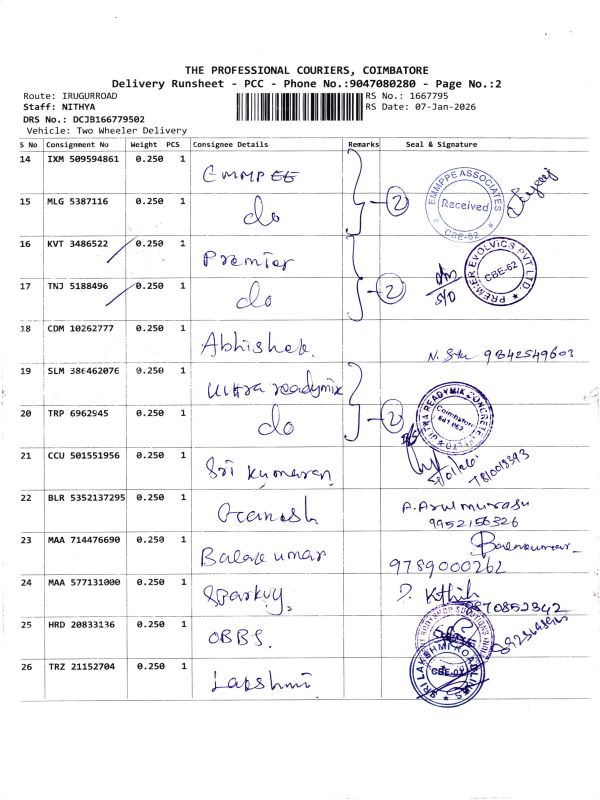 THE PROFESSIONAL COURIERS, COIMBATORE
Delivery Runsheet - PCC - Phone No.:9047080280 - Page No.:2
Route: IRUGURROAD
Staff: NITHYA
DRS No.: DCJB166779502
Vehicle: Two Wheeler Delivery
RS No.: 1667795
RS Date: 07-Jan-2026
S No Consignment No Weight PCS Consignee Details Remarks Seal & Signature
14 IXM 509594861 0.250 1 EMMPEE
EMMPPE ASSOCIATES Received CBE-62
15 MLG 5387116 0.250 1 do 2
16 KVT 3486522 0.250 1 Premier
PREMIER EVOLVICS PVT LTD. CBE-62
17 TNJ 5188496 0.250 1 do 2
18 CDM 10262777 0.250 1 Abhishek. 9842549603
19 SLM 386462076 0.250 1 Ultra readymix
ULTRA READYMIX CONCRETE Coimbatore
20 TRP 6962945 0.250 1 do 2
21 CCU 501551956 0.250 1 Sri Kumaran
22 BLR 5352137295 0.250 1 Ganesh A. Arulmurasu
9952156326
23 MAA 714476690 0.250 1 Balakumar Balakumar
9789000262
24 MAA 577131000 0.250 1 Sparkuy. 9870852342
25 HRD 20833136 0.250 1 OBBS.
26 TRZ 21152704 0.250 1 Lakshmi
SRI LAKSHMI ROADLINES